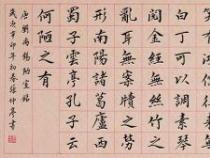 白丁可以調素琴
閱金經無絲竹之
亂耳無案牘之勞
形南陽諸葛廬西
蜀子雲亭孔子云
何陋之有
唐劉禹錫陋室銘
辛卯年初春張仲書